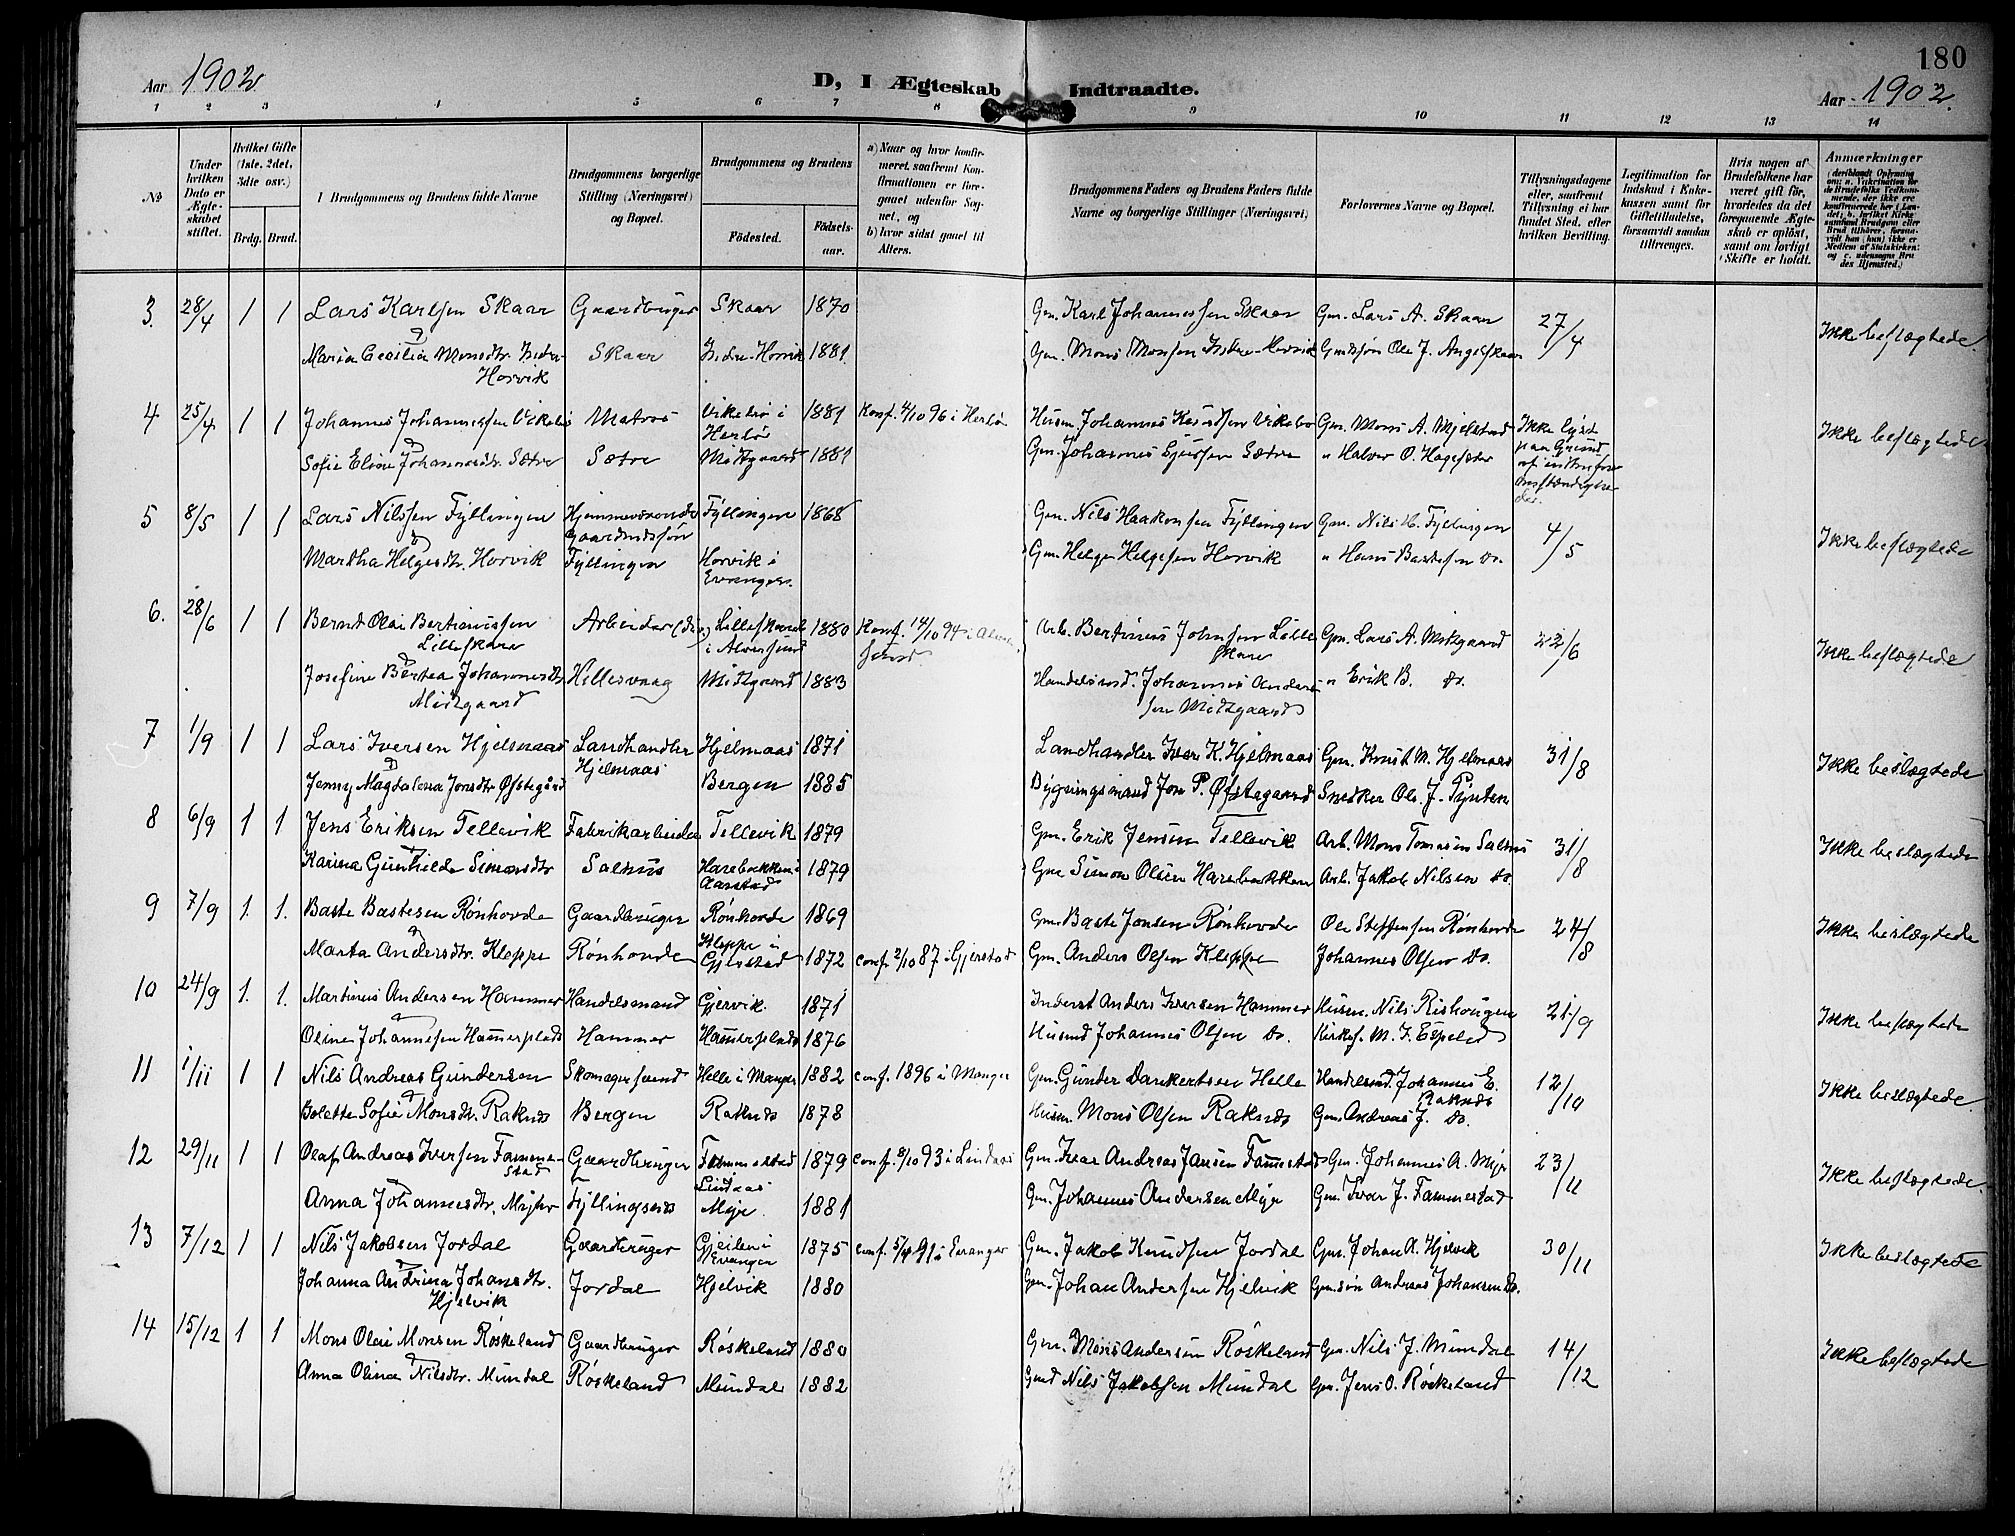 180
Aar 1902
D, I Ægteskab Indtraadte.
Aar 1902.
1 2 3 4 5 6 7 8 9 10 11 12 13 14
No
Under hvilken Dato er Ægteskabet stiftet.
Hvilket Gifte (1ste, 2det, 3die osv.)
Brdg. Brud.
I Brudgommens og Brudens fulde Navne
Brudgommens borgerlige Stilling (Næringsvei) og Bopæl.
Brudgommens og Brudens
Fødested.
Fødselsaar.
a) Naar og hvor konfirmeret, saafremt Konfirmationen er foregaaet udenfor Sognet, og
b) hvor sidst gaaet til Alters.
Brudgommens Faders og Brudens Faders fulde Navne og borgerlige Stillinger (Næringsvei)
Forlovernes Navne og Bopæl.
Tillysningsdagene eller, saafremt Tillysning ei har fundet Sted, efter hvilken Bevilling.
Legitimation for Indskud i Enkekassen samt for Giftetilladelse, forsaavidt saadan tiltrænges.
Hvis nogen af Brudefolkene har været gift før, hvorledes da det foregaaende Ægteskab er opløst, samt om lovligt Skifte er holdt.
Anmærkninger
3. 28/4 1 1 Lars Karlsen Skaar Gaardbruger Skaar 1870 Gm. Karl Johannessen Skaar Gm. Lars A. Skaar 27/4 Ikke beslægtede
Maria Cecilia Monsdtr. Indre- Skaar Indre-Horvik 1881 Gm. Mons Monsen Indre-Horvik Gmdssøn Ole J. Angelskaar
Horvik
4 25/4 1 1 Johannes Johannessen Vikebø Matros Vikebø i 1881 Konf. 4/10 96 i Herlø Husm. Johannes Knudsen Vikebø Gm. Mons A. Mjelstad Ikke lyst Ikke beslægtede
Herlø paa Grund
Sofie Eline Johannesdtr. Sætre Sætre Midtgaard 1881 Gm. Johannes Sjursen Sætre " Halvor O. Hagesæter
5 8/5 1 1 Lars Nilssen Fyllingen Hjemmeværende Fyllingen 1868 Gm. Nils Haakonsen Fyllingen Gm. Nils H. Fyllingen 4/5 Ikke beslægtede
Gaardmdssøn
Martha Helgesdtr. Horvik Fyllingen Horvik i Gm. Helge Helgesen Horvik " Hans Bastesen Do.
Evanger.
6. 28/6 1 1 Bernt Olai Bertinussen Arbeider Lilleskare 1880 Konf. 14/10 94 i Alver- Arb. Bertinus Johnsen Lille Gm. Lars A. Midtgaard 22/6 Ikke beslægtede
Lilleskare i Alversund sund. skare
Josefine Bertea Johannesdtr. Hillesvaag Midtgaard 1883 Handelsmd. Johannes Anders- " Erik B. Do.
Midtgaard sen Midtgaard
7 1/9 1 1 Lars Iversen Hjelmaas Landhandler Hjelmaas 1871 Landhandler Iver K. Hjelmaas Gm. Knut M. Hjelmaas 31/8 Ikke beslægtede
Hjelmaas
Jenny Magdalena Jonsdtr. Østegård Bergen 1885 Bygningsmand Jon P. Østegaard Snedker Ole J. Pynten
8 6/9 1 1 Jens Eriksen Tellevik Fabrikarbeider Tellevik 1879 Gm. Erik Jensen Tellevik Arb. Mons Tomasen Salhus 31/8 Ikke beslægtede
Karina Gunhilde Simonsdtr. Salhus Harebakken i 1879 Gm. Simon Olsen Harebakken Arb. Jakob Nilsen Do.
Aarstad
9 7/9 1. 1. Baste Bastesen Rönhovde Gaardbruger Rönhovde 1869 Gm. Baste Jonsen Rönhovde Ole Steffensen Rönhovde 24/8 Ikke beslægtede
Marta Andersdtr. Kleppe Rönhovde Kleppe i 1872 conf. 2/10 87 i Gjerstad Gm. Anders Olsen Kleppe Johannes Olsen Do.
Gjerstad
10 24/9 1. 1. Martinus Andersen Hammer Handelsmand Gjervik 1871 Inderst Anders Iversen Hammer Husm. Nils Rishougen 21/9 Ikke beslægtede
Oline Johannesen Hammersplads Hammer Hammersplads 1876 Husmd Johannes Olsen Do. Kirkes. M. J. Espeled
11 1/11 1 1 Nils Andreas Gundersen Skomagersvend Helle i Manger 1882 conf. 1896 i Manger Gm. Gunder Dankertsen Helle Handelsmd. Johannes E. 12/10 Ikke beslægtede.
Raknes
Bolette Sofie Monsdtr. Raknes Bergen Raknes 1878 Husm. Mons Olsen Raknes Gm. Andreas J. Do.
12 29/11 1 1 Olaf Andreas Iversen Famme- Gaardbruger Fammestad 1879 conf. 8/10 93 i Lindaas Gm. Ivar Andreas Jansen Fammestad Gm. Johannes A. Myr 23/11 Ikke beslægtede.
stad Lindaas
Anna Johannesdtr. Myhr Fyllingsnes Myr. 1881 Gm. Johannes Andersen Myr Gm. Ivar J. Fammestad
13 7/12 1 1 Nils Jakobsen Jordal Gaardbruger Gjeilen i 1875 conf. 5/4 91 i Evanger Gm. Jakob Knudsen Jordal Gm. Johan A. Hjelvik 30/11 Ikke beslægtede
Evanger
Johanna Andrina Johansdtr. Jordal Hjelvik 1880 Gm. Johan Andersen Hjelvik Gm.søn Andreas Johansen Do.
Hjelvik
14 15/12 1 1 Mons Olai Monsen Röskeland Gaardbruger Röskeland 1880 Gm. Mons Andersen Röskeland Gm. Nils J. Mundal 14/12 Ikke beslægtede
Anna Olina Nilsdtr. Mundal Röskeland Mundal 1882 Gmd Nils Jakobsen Mundal Gm. Jens O. Röskeland